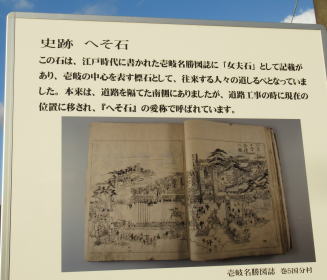 史跡 へそ石
この石は、江戸時代に書かれた壱岐名勝図誌に「女夫石」として記載が
あり、壱岐の中心を表す標石として、往来する人々の道しるべとなっていま
した。本来は、道路を隔てた南側にありましたが、道路工事の時に現在の
位置に移され、『へそ石』の愛称で呼ばれています。
壱岐名勝図誌 巻5国分村